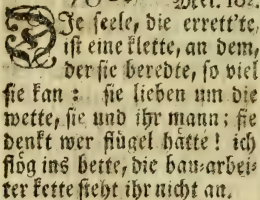 Mel. 182.
Die seele, die errett'te,
ist eine klette, an dem,
der sie beredte, so viel
sie kan: sie lieben um die
wette, sie und ihr mann; sie
denkt wer flügel hätte! ich
flög ins bette, die bau-arbei-
ter kette steht ihr nicht an.